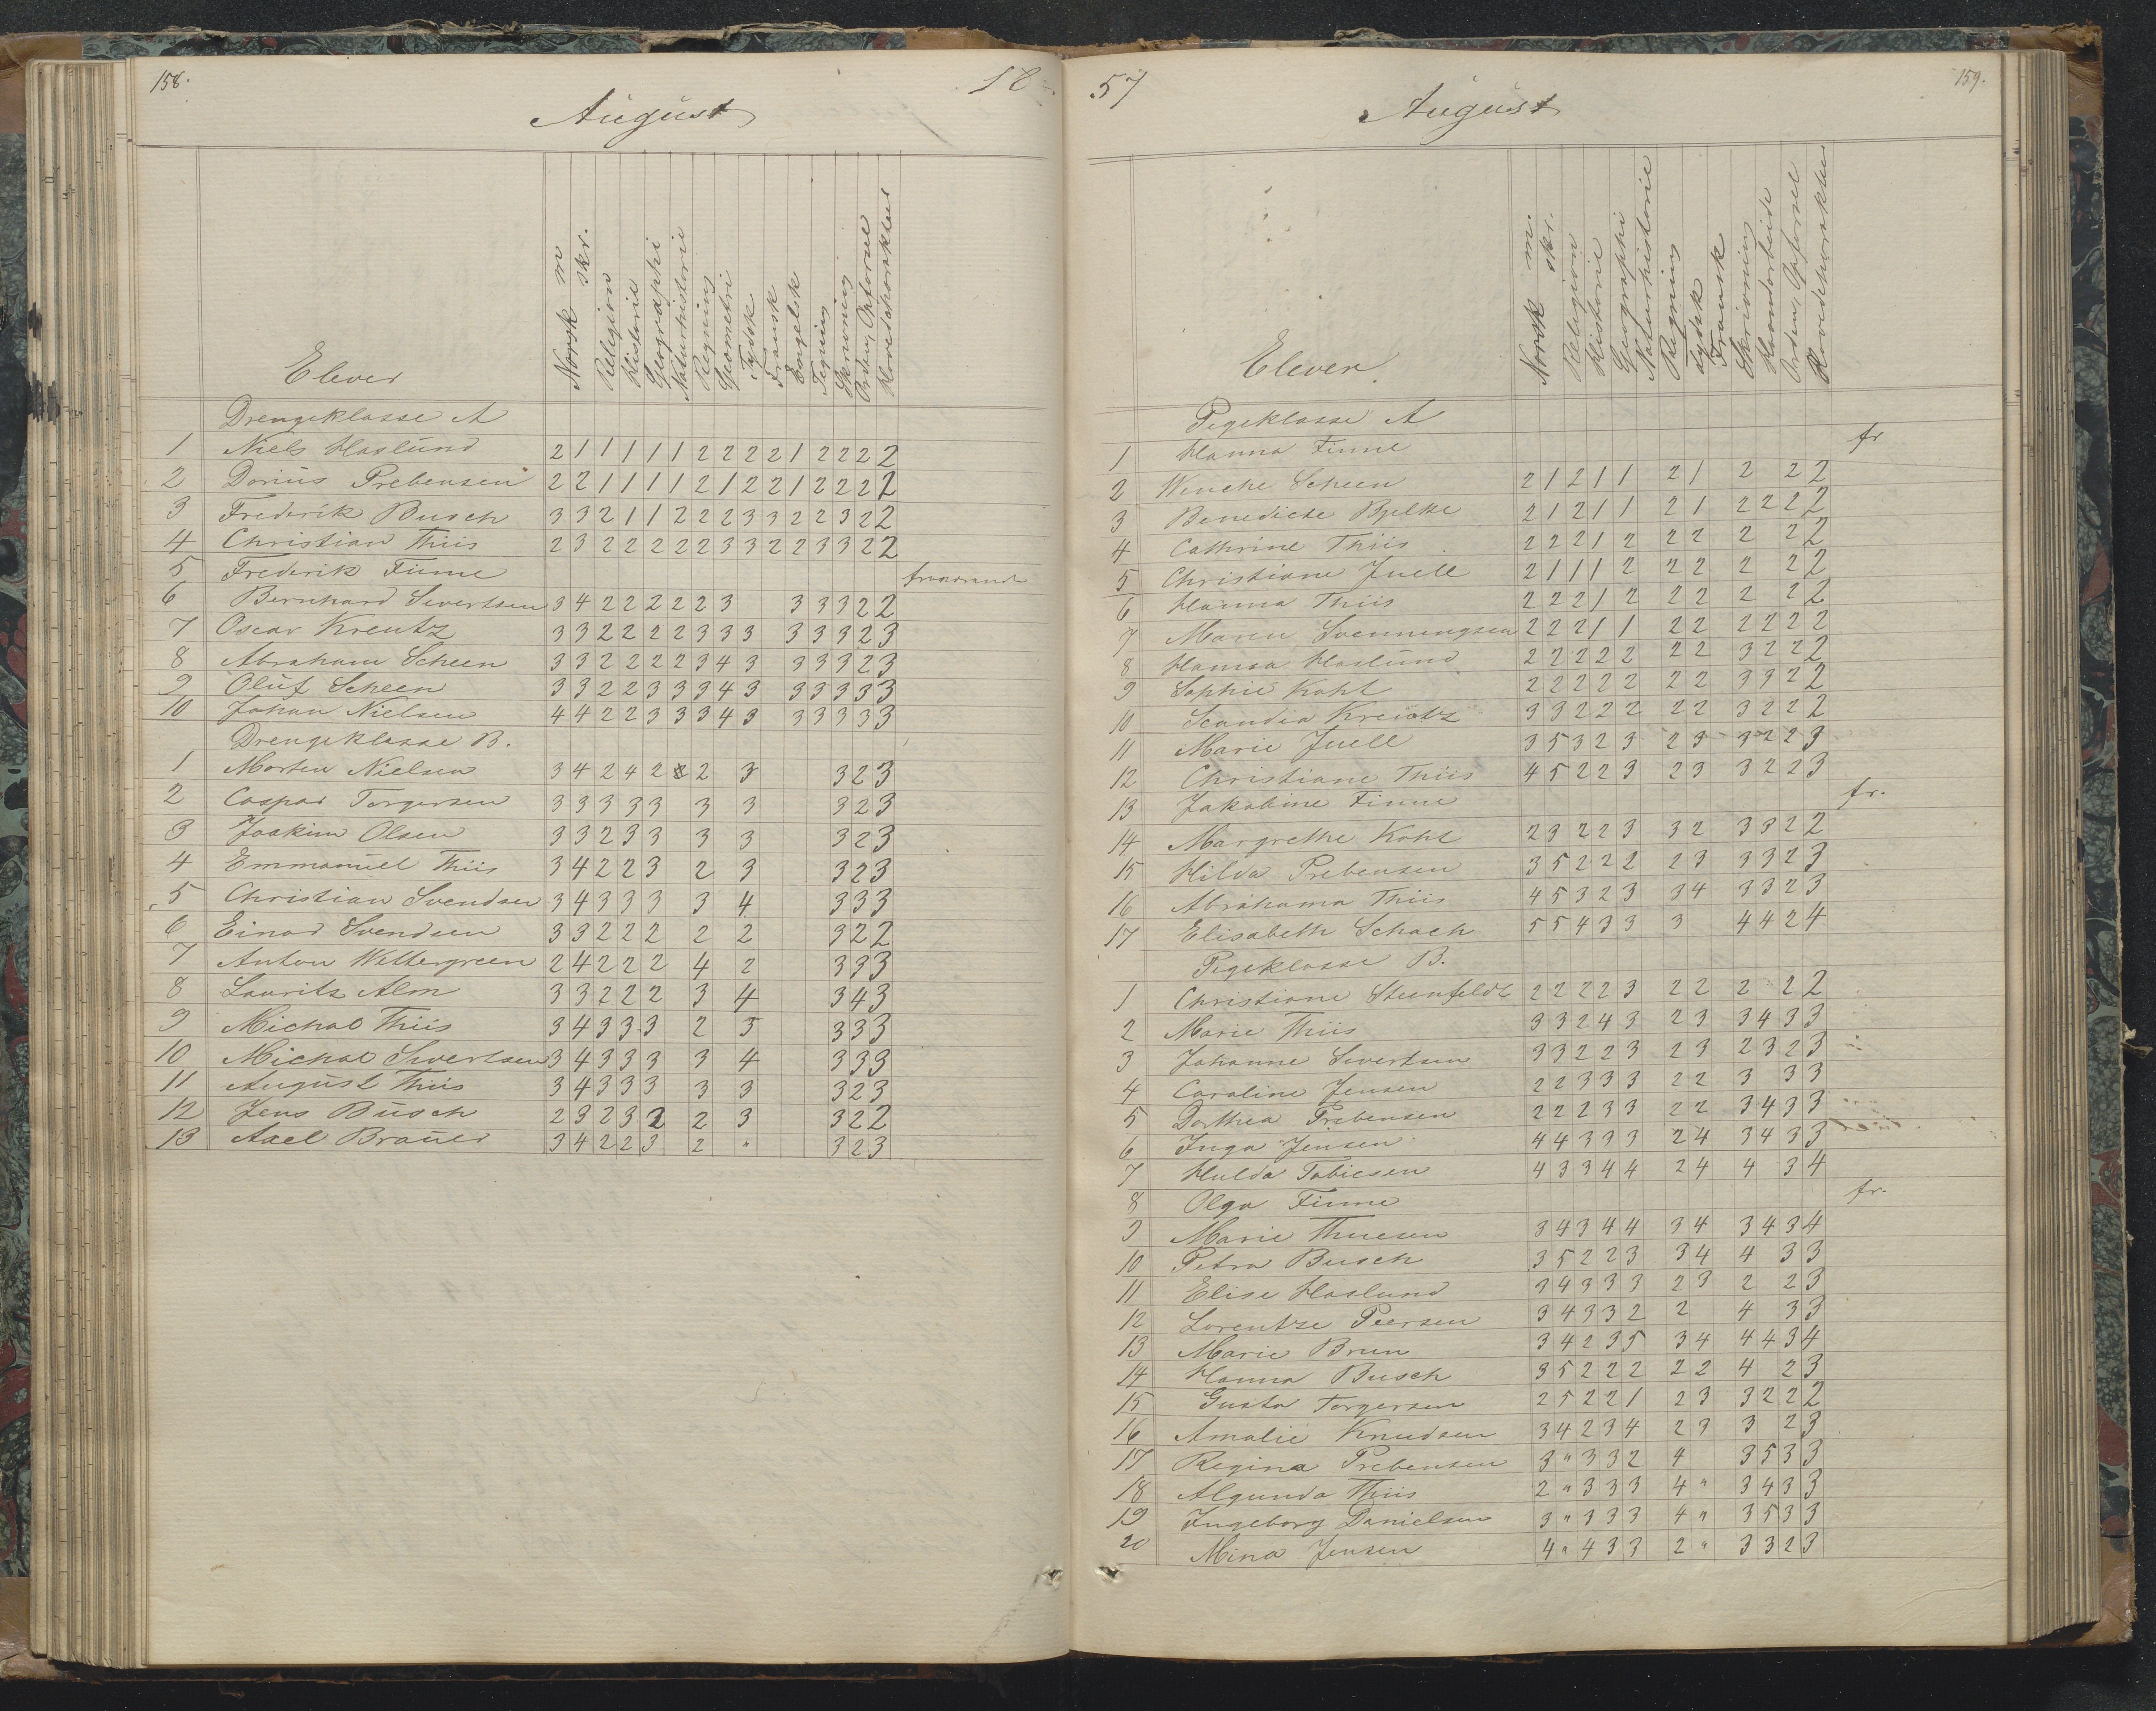 158.
18
August
Elever
Norsk m
skr.
Religion
Historie
Geographi
Naturhistorie
Regning
Geometri
Tydsk
Fransk
Engelsk
Tegning
Skrivning
Orden, Opførsel
Hovedcharakter
Drengeklasse A
1 Niels Haslund 2 1 1 1 1 1 2 2 2 2 1 2 2 2 2
2 Dorius Prebensen 2 2 1 1 1 1 2 1 2 2 1 2 2 2 2
3 Frederik Busch 3 3 2 1 1 2 2 2 3 3 2 2 3 2 2
4 Christian Thiis 2 3 2 2 2 2 2 2 3 3 2 2 3 3 2 2
5 Frederik Finne fraværende
6 Bernhard Sivertsen 3 4 2 2 2 2 2 2 3 3 3 3 2 2
7 Oscar Kreutz 3 3 2 2 2 2 2 3 3 3 3 3 3 2 3
8 Abraham Scheen 3 3 2 2 2 2 2 3 4 3 3 3 3 2 3
9 Oluf Scheen 3 3 2 2 3 3 3 4 3 3 3 3 3 3
10 Johan Nielsen 4 4 2 2 3 3 3 4 3 3 3 3 3 3
Drengeklasse B.
1 Morten Nielsen 3 4 2 4 2 2 3 3 2 3
2 Caspar Torgersen 3 3 3 3 3 3 3 3 2 3
3 Joakim Olsen 3 3 2 3 3 3 3 3 2 3
4 Emmanuel Thiis 3 4 2 2 3 2 3 3 2 3
5 Christian Svendsen 3 4 3 3 3 3 4 3 3 3
6 Einar Svendsen 3 3 2 2 2 2 2 3 2 2
7 Anton Wettergreen 2 4 2 2 2 4 2 3 3 3
8 Laurits Alm 3 3 2 2 2 3 4 3 4 3
9 Michal Thiis 3 4 3 3 3 2 3 3 3 3
10 Michal Sivertsen 3 4 3 3 3 3 4 3 3 3
11 August Thiis 3 4 3 3 3 3 3 3 2 3
12 Jens Busch 2 3 2 3 2 2 3 3 2 2
13 Axel Brauer 3 4 2 2 3 2 " 3 2 3
57
159.
August
Elever
Norsk m.
skr.
Religion
Historie
Geographi
Naturhistorie
Regning
Tydsk
Fransk
Skrivning
Haandarbeide
Orden, Opførsel
Hovedcharakter
Pigeklasse A
1 Hanna Finne fr
2 Wenche Scheen 2 1 2 1 1 2 1 2 2 2
3 Benedicte Bjelke 2 1 2 1 1 2 1 2 2 2 2
4 Cathrine Thiis 2 2 2 1 2 2 2 2 2 2
5 Christiane Juell 2 1 1 1 2 2 2 2 2 2
6 Hanna Thiis 2 2 2 1 2 2 2 2 2 2
7 Maren Svenningsen 2 2 2 1 1 2 2 2 2 2 2
8 Hansa Haslund 2 2 2 2 2 2 2 3 2 2 2
9 Sophie Koht 2 2 2 2 2 2 2 3 3 2 2
10 Scandia Kreutz 3 3 2 2 2 2 2 3 2 2 2
11 Marie Juell 3 5 3 2 3 2 3 3 2 2 3
12 Christiane Thiis 4 5 2 2 3 2 3 3 2 2 3
13 Jakobine Finne fr.
14 Margrethe Koht 2 3 2 2 3 3 2 3 3 2 2
15 Hilda Prebensen 3 5 2 2 2 2 3 3 3 2 3
16 Abrahama Thiis 4 5 3 2 3 3 4 3 3 2 3
17 Elisabeth Schach 5 5 4 3 3 3 4 4 2 4
Pigeklasse B.
1 Christiane Steenfeldt 2 2 2 2 3 2 2 2 2 2
2 Marie Thiis 3 3 2 4 3 2 3 3 4 3 3
3 Johanne Sivertsen 3 3 2 2 3 2 3 2 3 2 3
4 Caroline Jensen 2 2 3 3 3 2 2 3 3 3
5 Dorthea Prebensen 2 2 2 3 3 2 2 3 4 3 3
6 Inga Jensen 4 4 3 3 3 2 4 3 4 3 3
7 Hulda Tobiesen 4 3 3 4 4 2 4 4 3 4
8 Olga Finne fr.
9 Marie Thuesen 3 4 3 4 4 3 4 3 4 3 4
10 Petra Busch 3 5 2 2 3 3 4 4 3 3
11 Elise Haslund 3 4 3 3 3 2 3 2 2 3
12 Lorentze Peersen 3 4 3 3 2 2 4 3 3
13 Marie Brun 3 4 2 3 5 3 4 4 4 3 4
14 Hanna Busch 3 5 2 2 2 2 2 4 2 3
15 Gusta Torgersen 2 5 2 2 1 2 3 3 2 2 2
16 Amalie Knudsen 3 4 2 3 4 2 3 3 2 3
17 Regina Prebensen 3 " 3 3 2 4 3 5 3 3
18 Algunda Thiis 2 " 3 3 3 4 " 3 4 3 3
19 Ingeborg Danielsen 3 " 3 3 3 4 " 3 5 3 3
20 Mina Jensen 4 " 4 3 3 2 " 3 3 2 3